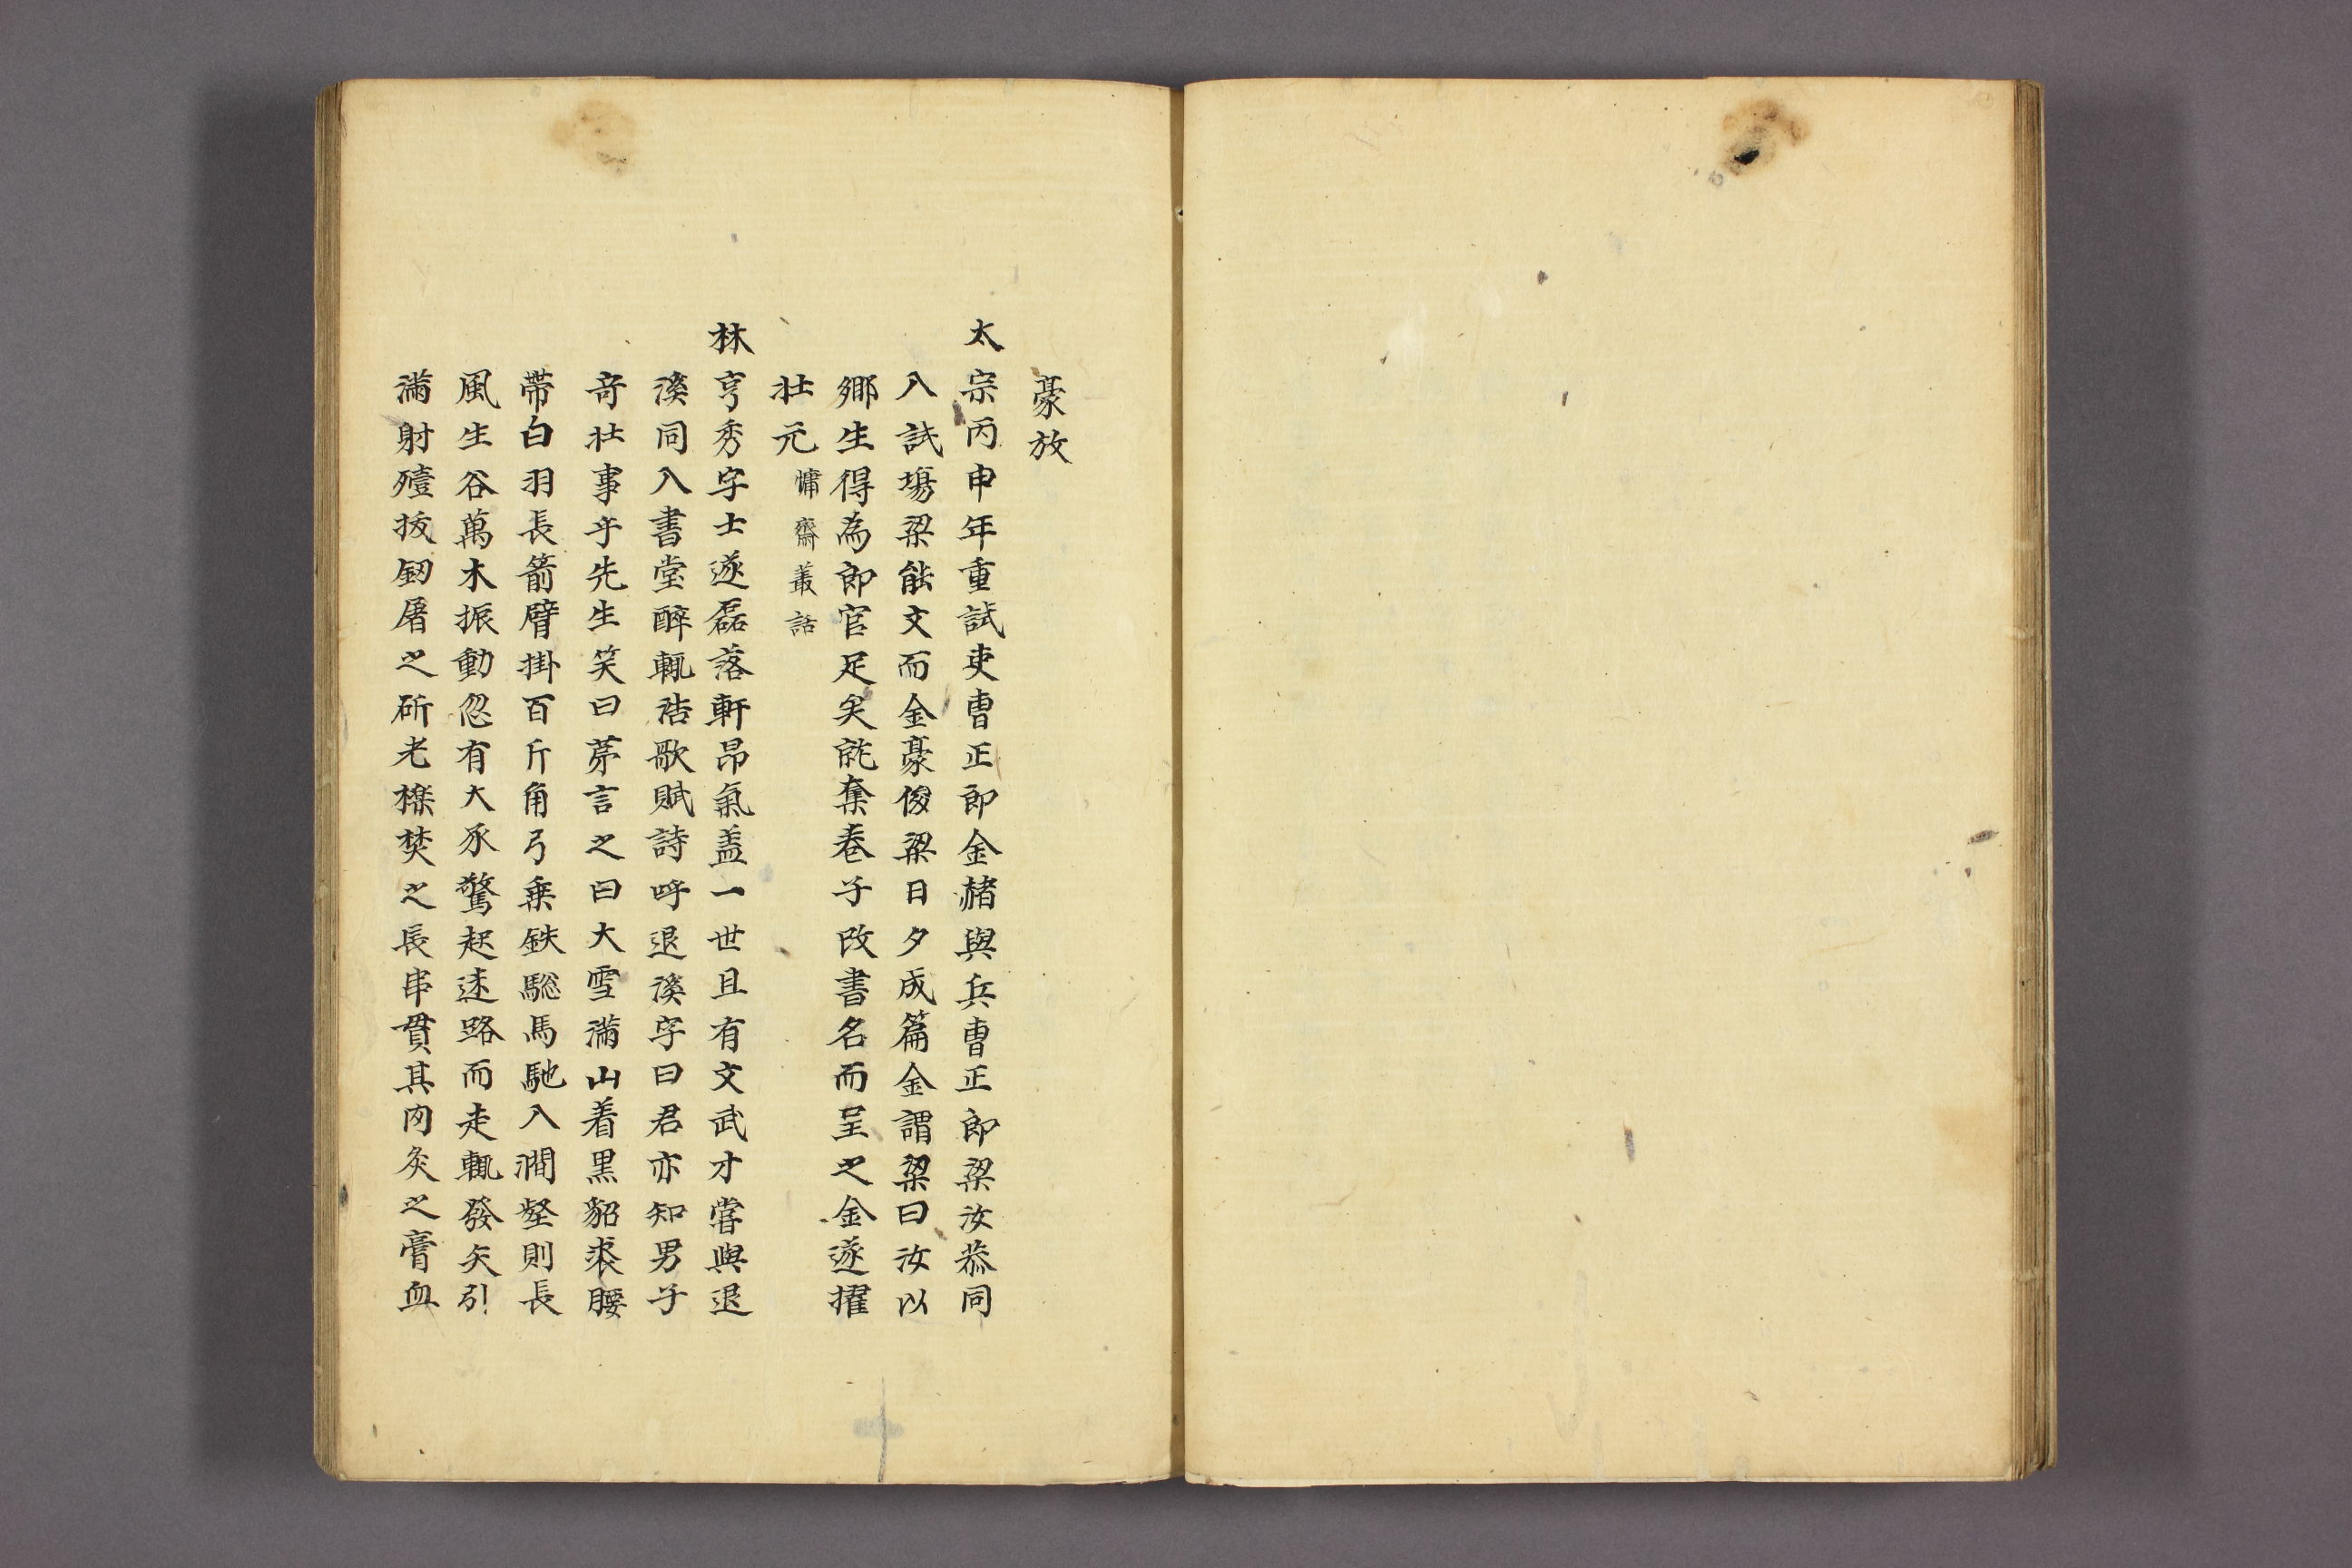 豪放
太宗丙申年重試吏曺正郎金赭與兵曺正郎梁汝恭同
入試塲梁能文而金豪俊梁日夕成篇金謂梁曰汝以
鄉生得為郎官足矣能奪卷子改書名而呈之金遂擢
壯元慵齋叢話
林亨秀字士遂磊落軒昂氣盖一世且有文武才嘗與退
溪同入書堂醉輒浩歌賦詩呼退溪字曰君亦知男子
竒壯事乎先生笑曰苐言之曰大雪滿山着黒貂裘腰
帶白羽長箭臂掛百斤角弓乗鉄驄馬馳入澗壑則長
風生谷萬木振動忽有大豕驚起迷路而走輒發矢引
滿射殪拔釰屠之斫老櫟焚之長串貫其肉炙之膏血